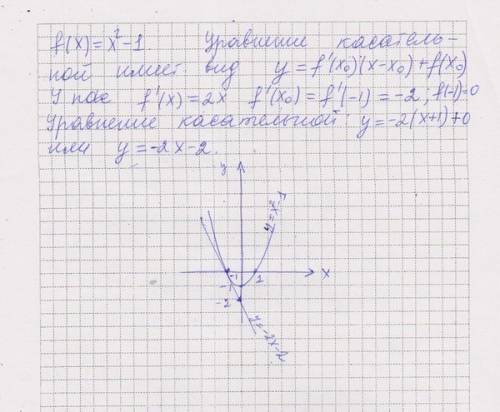 f(x)=x²-1. Уравнение касатель-
ной имеет вид y=f'(x₀)(x-x₀)+f(x₀)
У нас f'(x)=2x f'(x₀)=f'(-1)=-2; f(-1)=0
Уравнение касательной: y=-2(x+1)+0
или y=-2x-2.
y
y=x²-1
-1 1 x
-1
-2
y=-2x-2